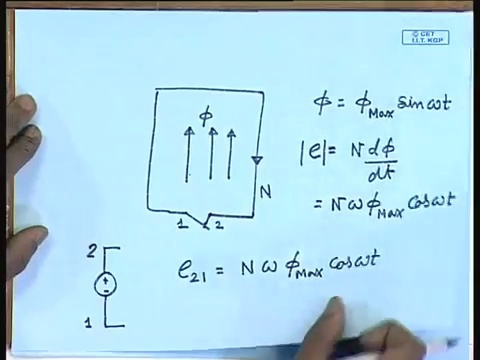 © CET
I.I.T. KGP
φ
φ = φ_Max sin ωt
|e| = N dφ/dt
N
= N ω φ_Max cos ωt
1 2
2
+
-
1
e_21 = N ω φ_Max cos ωt